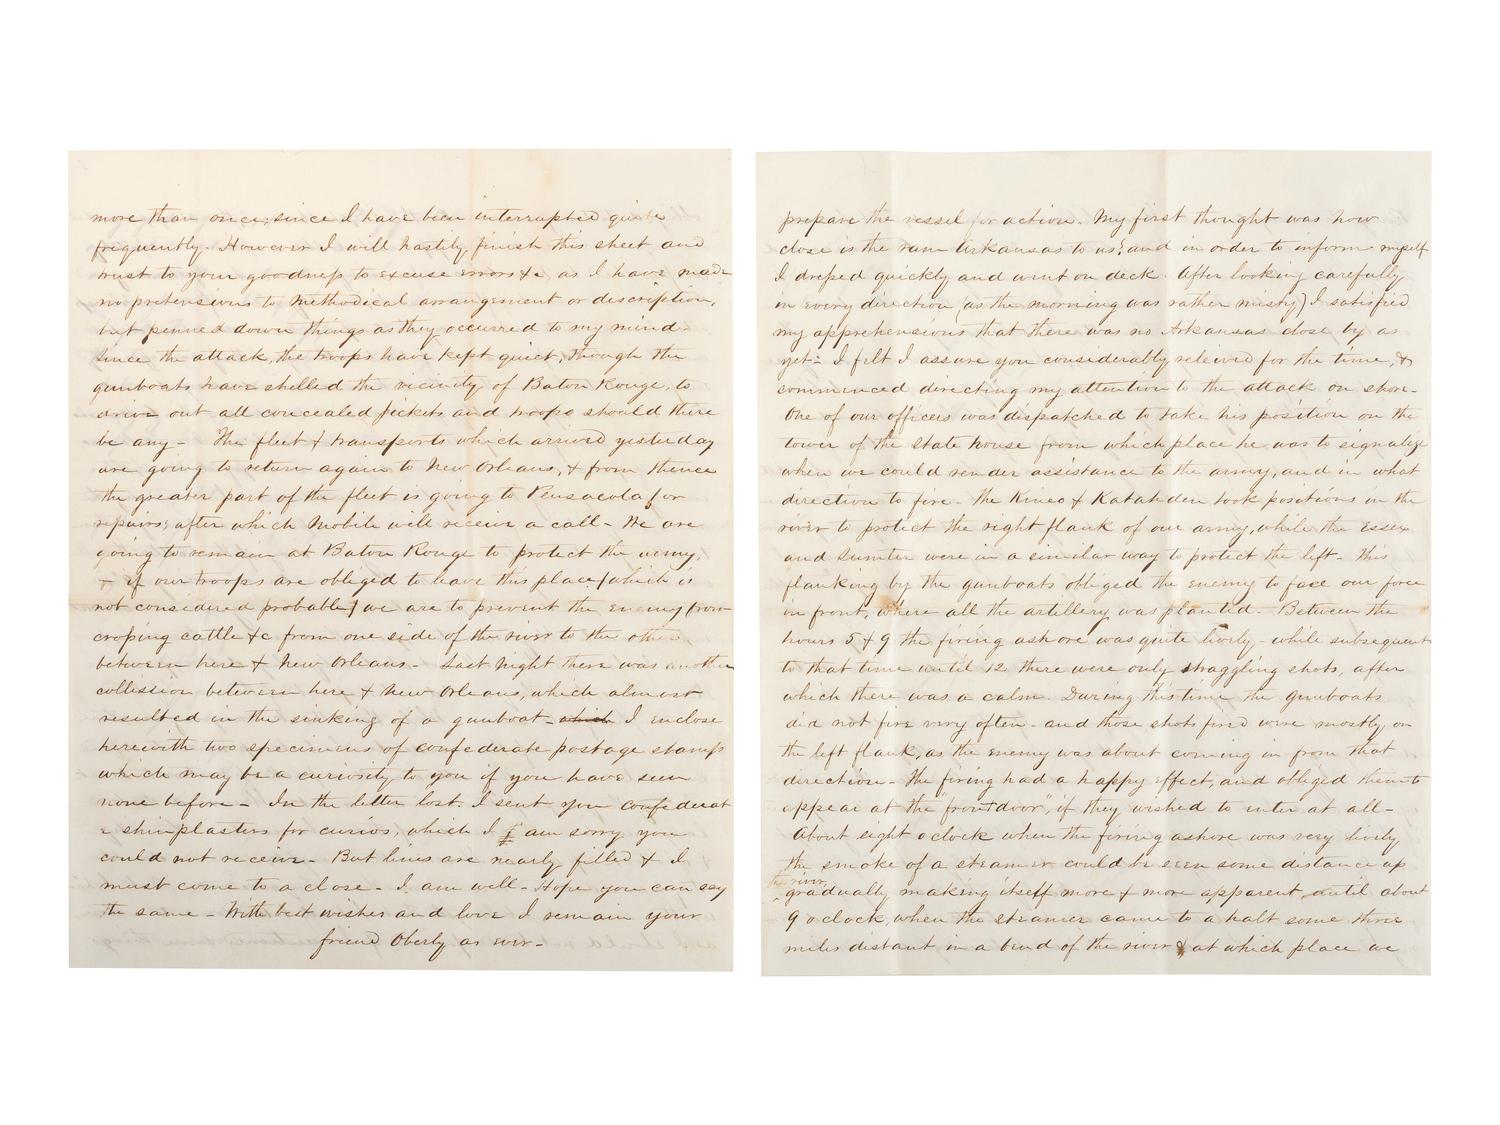 more than once, since I have been interrupted quite
frequently. However I will hastily finish this sheet and
trust to your goodness to excuse errors &c, as I have made
no pretensions to methodical arrangement or description,
but penned down things as they occurred to my mind.
Since the attack, the troops have kept quiet, though the
gunboats have shelled the vicinity of Baton Rouge, to
drive out all concealed pickets and troops should there
be any - The fleet & transports which arrived yesterday
are going to return again to New Orleans, & from thence
the greater part of the fleet is going to Pensacola for
repairs; after which Mobile will receive a call - We are
going to remain at Baton Rouge to protect the army,
& if our troops are obliged to leave this place (which is
not considered probable) we are to prevent the enemy from
croping cattle &c from one side of the river to the other
between here & New Orleans - Last night there was another
collission between here & New Orleans, which almost
resulted in the sinking of a gunboat - which I enclose
herewith two specimens of confederate postage stamps
which may be a curiosity to you if you have seen
none before - In the letter lost, I sent you confederat
e shinplasters for curios, which I am sorry you
could not receive - But lines are nearly filled & I
must come to a close - I am well - Hope you can say
the same - With best wishes and love I remain your
friend Oberly as ever -
prepare the vessel for action. My first thought was how
close is the ram Arkansas to us? and in order to inform myself
I dresed quickly and went on deck. After looking carefully
in every direction (as the morning was rather misty) I satisfied
my apprehensions that there was no Arkansas close by as
yet - I felt I assure you considerably releived for the time, &
commenced directing my attention to the attack on shore -
One of our officers was dispatched to take his position on the
tower of the State house from which place he was to signalize
when we could render assistance to the army, and in what
direction to fire - The Kineo & Katahden took positions in the
river to protect the right flank of our army, while the Essex
and Sumter were in a similar way to protect the left - This
flanking by the gunboats obliged the enemy to face our force
in front, where all the artillery was planted - Between the
hours 5 & 9 the firing ashore was quite lively - while subsequent
to that time until 12 there were only straggling shots, after
which there was a calm. During this time the gunboats
did not fire very often - and those shots fired were mostly on
the left flank, as the enemy was about coming in from that
direction - The firing had a happy effect, and obliged them to
appear at the "front door", if they wished to enter at all -
About eight o'clock when the firing ashore was very lively
the smoke of a steamer could be seen some distance up
the river,
gradually making itself more & more apparent until about
9 o'clock, when the steamer came to a halt some three
miles distant in a bend of the river & at which place we